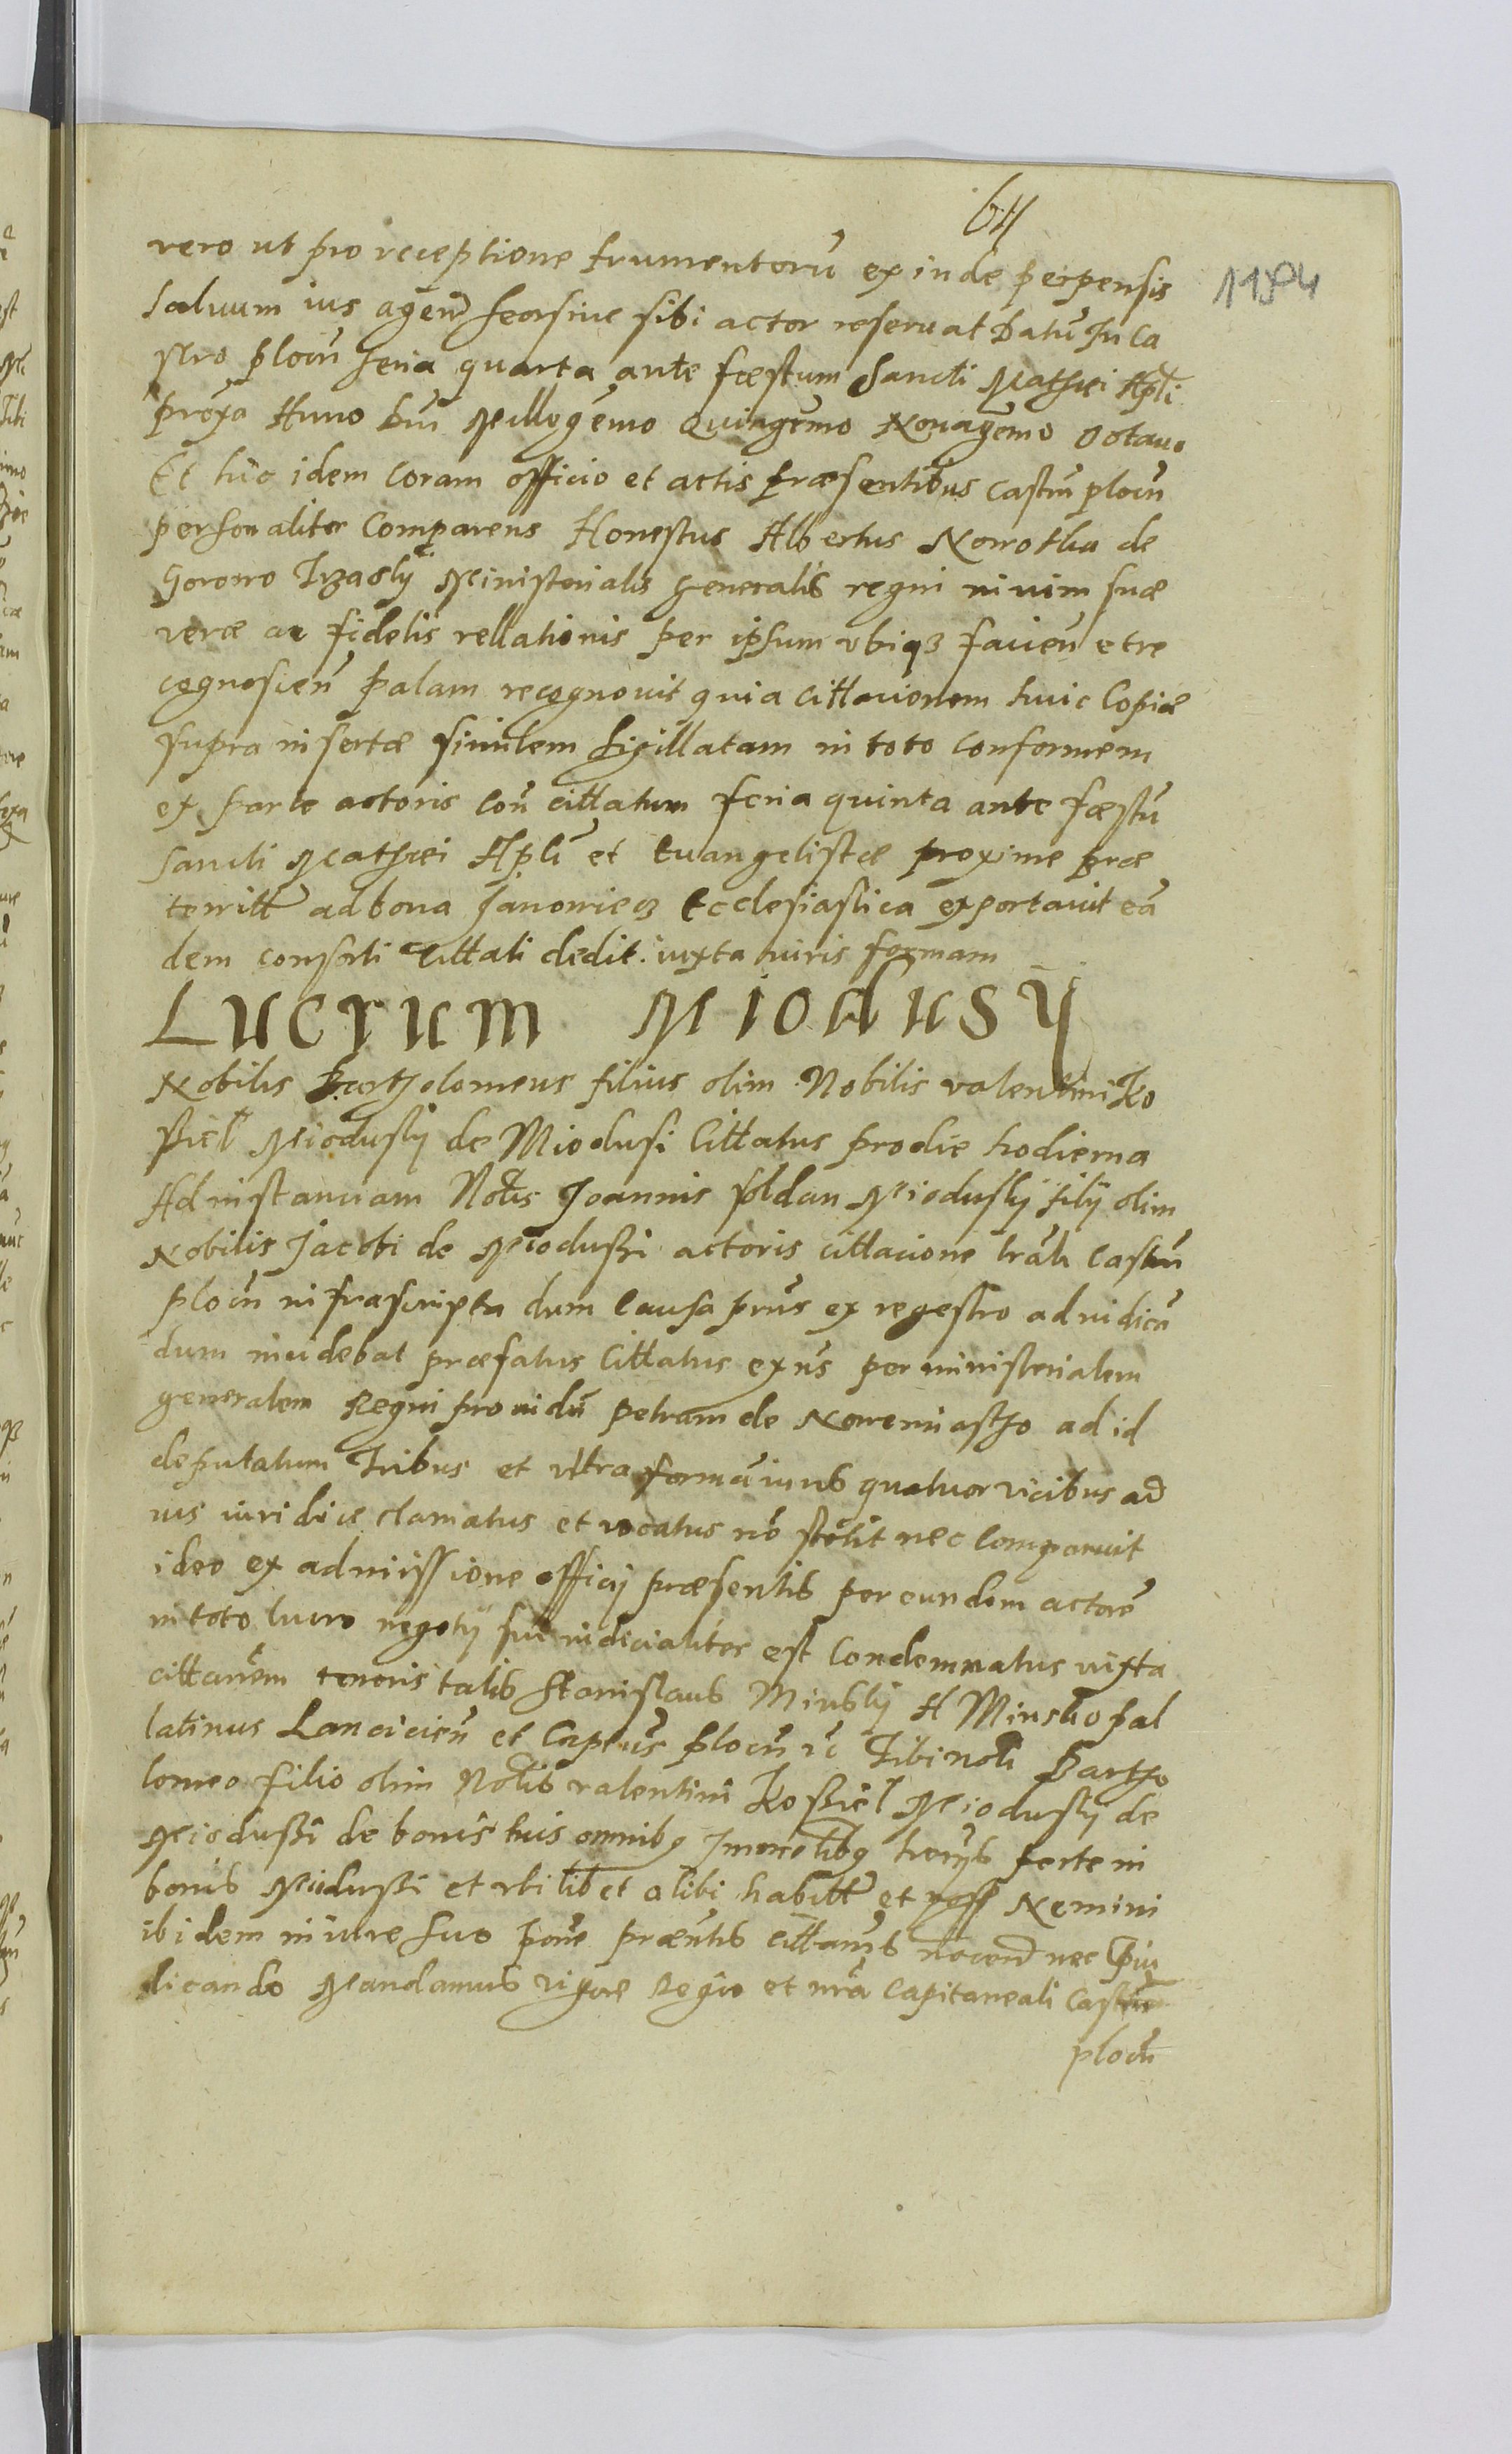 64
1194
vero ut pro receptione frumentorũ exinde perpensis
saluum ius agend seorsiue sibi actor reseruat Datũ In Ca
stro plocn̄ feria quarta ante fæstum Sancti Mathei Apli
proxa Anno Dni Millogēmo Quingēmo Nonagēmo Octauo
Et hüc idem coram officio et actis præsentibus castrn̄ plocn̄
personaliter Comparens Honestus Albertus Nowotka de
Gorowo Trzasky Ministerialis generalis regni in vim suæ
veræ ac fidelis rellationis per ipsum vbiq3 facien̄ et re
cognoscien̄ palam recognouit quia cittacionem huic Copiæ
supra insertæ similem sigillatam in toto conformem
ex parte actoris con̄ cittatum feria quinta ante fæstũ
Sancti Mathei Apli et Euangelistæ proxime præ
teritt ad bona Janowiecz Ecclesiastica exportauit eã
dem consrti Cittati dedit iuxta iuris formam
Lucrum Miodusÿ
Nobilis Bartholomeus filius olim Nobilis valentini Ko
ssiel Miodusky de Miodusi Cittatus pro die hodierna
Ad instanciam Nolis Joannis soldan Miodusky filÿ olim
Nobilis Jacobi de Miodussi actoris cittacione lrali castrn̄
plocn̄ infrascripta dum causa prn̄s ex regestro ad iudicā
dum incidebat præfatus Cittatus exn̄s per ministerialem
generalem Regni prouidũ petram de Nowemiastho ad id
deputatum tribus et vltra formā iuris quatuor vicibus ad
ius iuridice clamatus et vocatus nō stetit nec comparuit
ideo ex admissione officij præsentis per eundem actorē
in toto lucro negotÿ sui iudicialiter est condemnatus iuxta
cittanēm tenoris talis Stanislaus Minsky A Minsko pal
latinus Lanciciēn et Capneus plocn̄ rc Tibi noli Bartho
lomeo filio olim Nolis valentini Kossiel Miodusky de
Miodussi de bonis tuis omnibg Immolibg herÿb forte in
bonis Miodussi et vbilibet alibi habitt et poss Nemini
ibidem in iure suo pone præntis cittanis nocend nec Piu
dicando Mandamus vigore Regio et nrā Capitaneali castrn̄
plocn̄